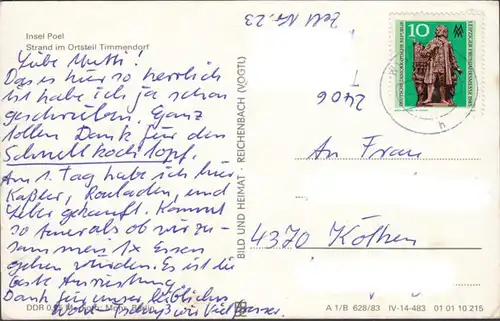 Insel Poel
Strand im Ortsteil Timmendorf
Zelt Nr. 23
Liebe Mutti!
Das es hier so herrlich
ist habe ich ja schon
geschrieben. Ganz
tollen Dank für den
Schnellkochtopf.
Am 1. Tag habe ich hier
Kaßler, Rouladen, und
Leber gekauft. Kommt
so teuer als ob wir zu-
sammen 1x Essen
gehen würden. Es ist die
beste Ausrüstung.
Dank für unser
wir
BILD UND HEIMAT · REICHENBACH (VOGTL)
10
DEUTSCHE DEMOKRATISCHE REPUBLIK
LEIPZIGER FRÜHJAHRSMESSE 1985
h
2406
An Frau
4370 Köthen
DDR 0,
A 1/B 628/83 IV-14-483 01 01 10 215